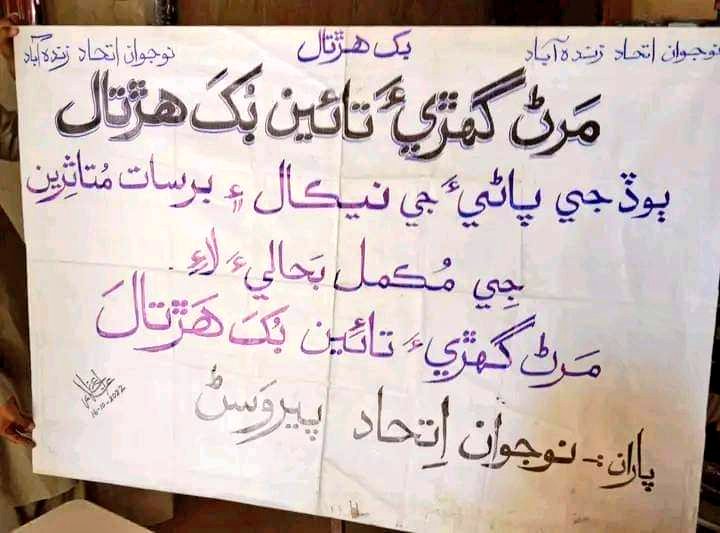 نوجوان اتحاد زنده آباد
بک هڙتال
نوجوان اتحاد زنده آباد
مَرڻ گهڙيءَ تائين بُکَ هڙتال
ٻوڏ جي پاڻيءَ جي نيڪال ۽ برسات مُتاثِرين
جِي مُڪمل بَحاليءَ لاءِ
مَرڻ گهڙيءَ تائين بُکَ هَڙتالَ
پاران :- نوجوان اِتحاد پيروَسڻ
16-10-2022